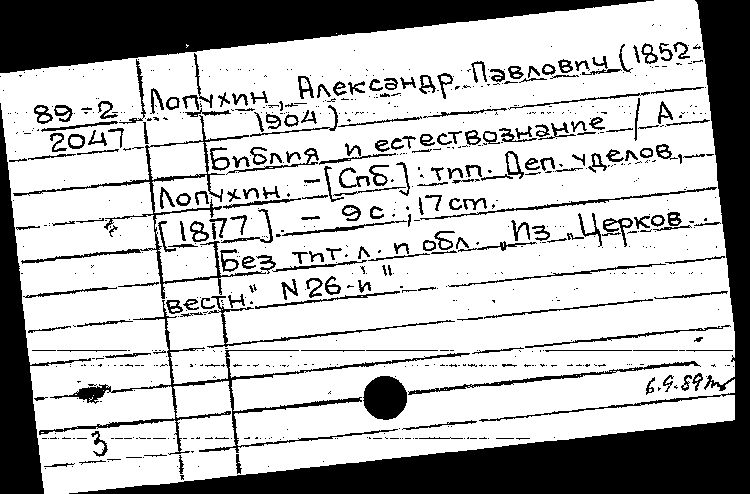 89-2
2047
Лопухин, Александр Павлович (1852-
1904).
Библия и естествознание / А.
Лопухин. – [Спб.] : тип. Деп. уделов,
[1877]. – 9 с. ; 17 cm.
Без тит. л. и обл. „Из „Церков.
вестн." N 26-й".
6.9.89
3